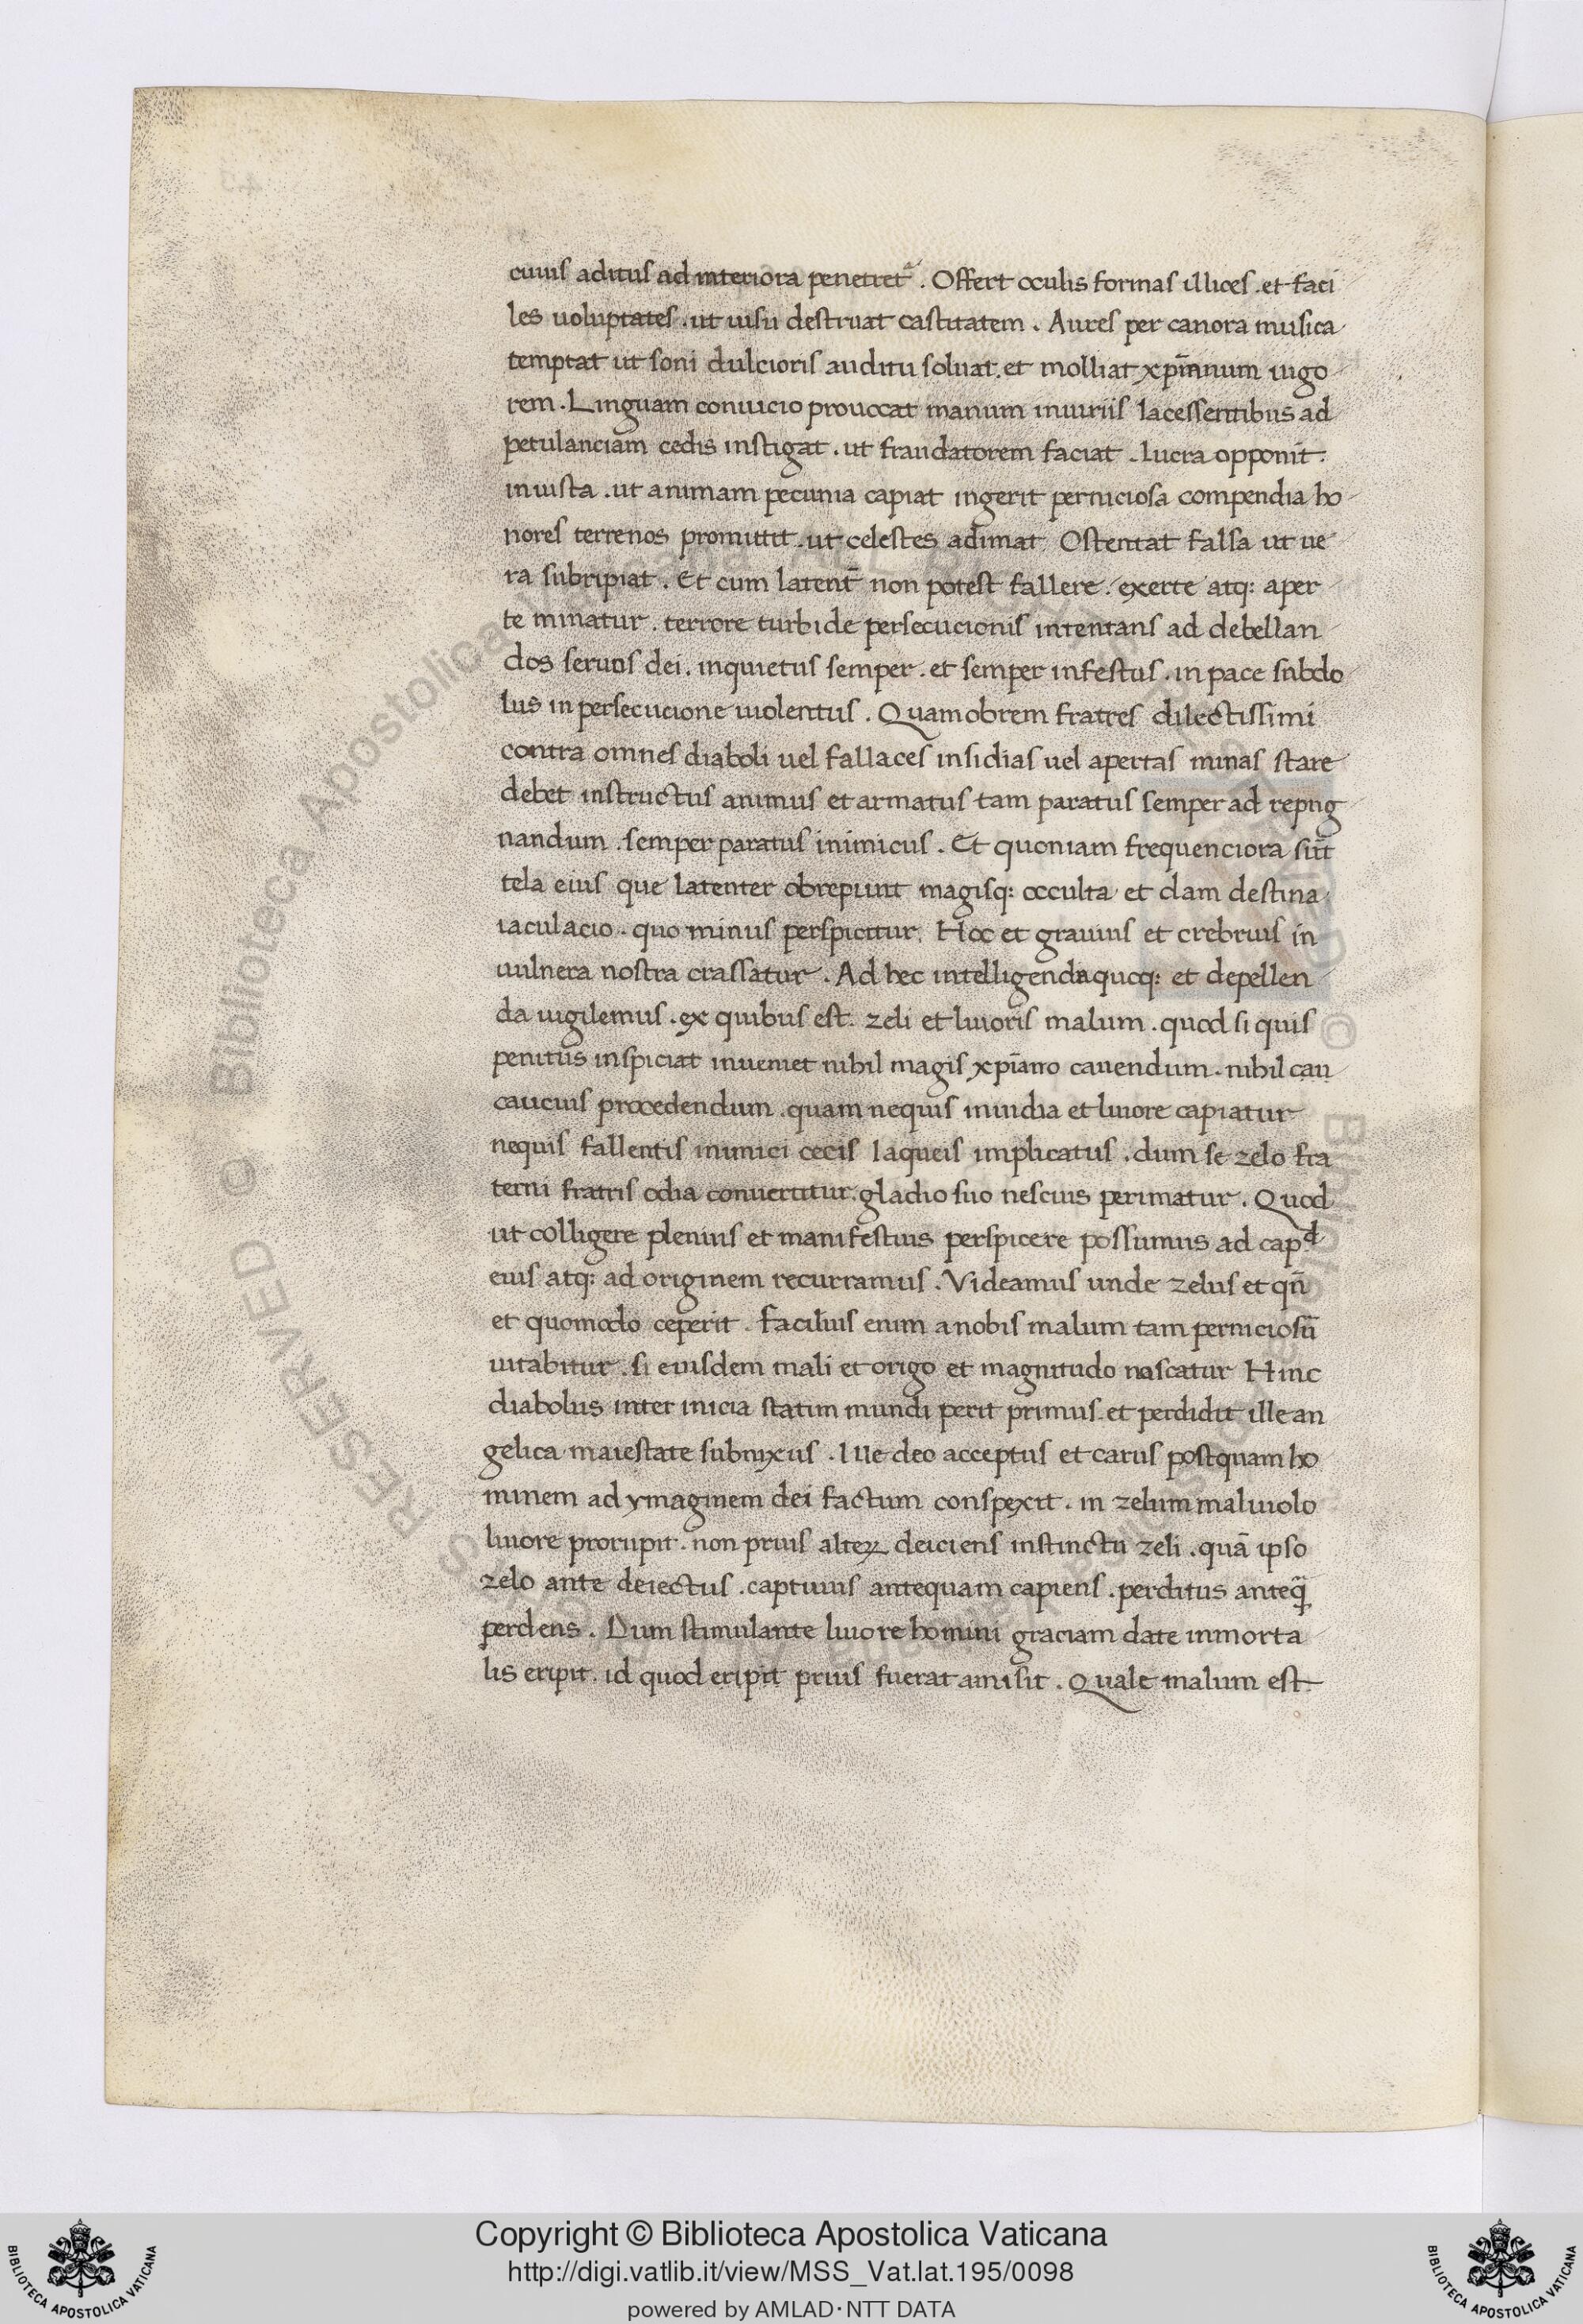 cuius aditus ad interiora penetret . Offert oculis formas illices . et faci
les uoluptates . ut uisu destruat castitatem . Aures per canora musica
temptat ut soni dulcioris auditu soluat . et molliat xp̄ianum uigo
rem . Linguam conuicio prouocat manum iniuriis lacessentibus ad
petulanciam cedis instigat . ut fraudatorem faciat . lucra opponit .
iniusta . ut animam pecunia capiat ingerit perniciosa compendia ho
nores terrenos promittit . ut celestes adimat Ostentat falsa ut ue
ra subripiat . Et cum latent̄ non potest fallere . exerte atq: aper
te minatur . terrore turbide persecucionis intentans ad debellan
dos seruos dei . inquietus semper . et semper infestus . in pace subdo
lus in persecucione uiolentus . Quamobrem fratres dilectissimi
contra omnes diaboli uel fallaces insidias uel apertas minas stare
debet instructus animus et armatus tam paratus semper ad repug
nandum . semper paratus inimicus . Et quoniam frequenciora sūt
tela eius que latenter obrepunt magisq: occulta et clam destina
iaculacio . quo minus perspicitur . Hoc et grauius et crebrius in
uulnera nostra crassatur . Ad hec intelligenda quoq: et depellen
da uigilemus . ex quibus est . zeli et liuoris malum . quod si quis
penitus inspiciat inueniet nihil magis xp̄iano cauendum . nihil cau
caucius procedendum . quam nequis inuidia et liuore capiatur
nequis fallentis inimici cecis laqueis implicatus . dum se zelo fra
terni fratris odia conuertitur . gladio suo nescius perimatur . Quod
ut colligere plenius et manifestius perspicere possumus ad capd
eius atq: ad originem recurramus . Videamus unde zelus et qn̄
et quomodo ceperit . facilius enim a nobis malum tam perniciosū
uitabitur . si eiusdem mali et origo et magnitudo noscatur Hinc
diabolus inter inicia statim mundi perit primus . et perdidit ille an
gelica maiestate subnixus . Ille deo acceptus et carus postquam ho
minem ad ymaginem dei factum conspexit . in zelum maliuolo
liuore prorupit . non prius alteꝝ deiciens instinctu zeli . quā ipso
zelo ante deiectus . captiuus antequam capiens . perditus anteq̄
perdens . Dum stimulante liuore homini graciam date inmorta
lis eripit . id quod eripit prius fuerat amisit . Quale malum est
Copyright © Biblioteca Apostolica Vaticana
http://digi.vatlib.it/view/MSS_Vat.lat.195/0098
powered by AMLAD·NTT DATA